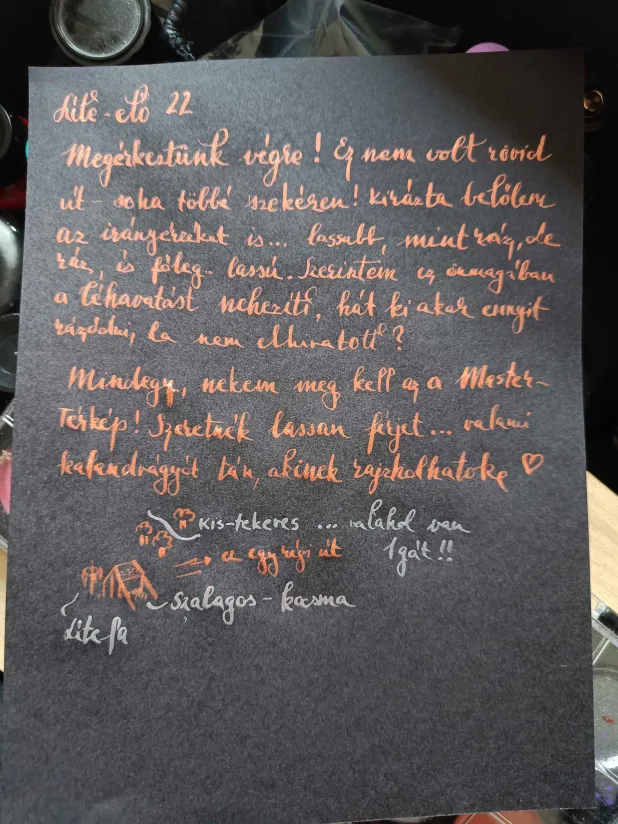 Lite-elő 22
Megérkeztünk végre! Ez nem volt rövid
út - soha többé szekéren! Kirázta belőlem
az irányereiket is... lassabb, mint ráz, de
ráz, és főleg.. lassú. Szerintem ez önmagában
a léhavatást nehezíti, hát ki akar ennyit
rázódni, ha nem elhivatott?
Mindegy, nekem meg kell az a Mester-
Térkép! Szeretnék lassan férjet... valami
kalandvágyót tán, akinek rajzolhatok ♡
Kis-tekeres ... valahol van
1 gát!!
ez egy régi út
Szalagos-kocsma
Litefa